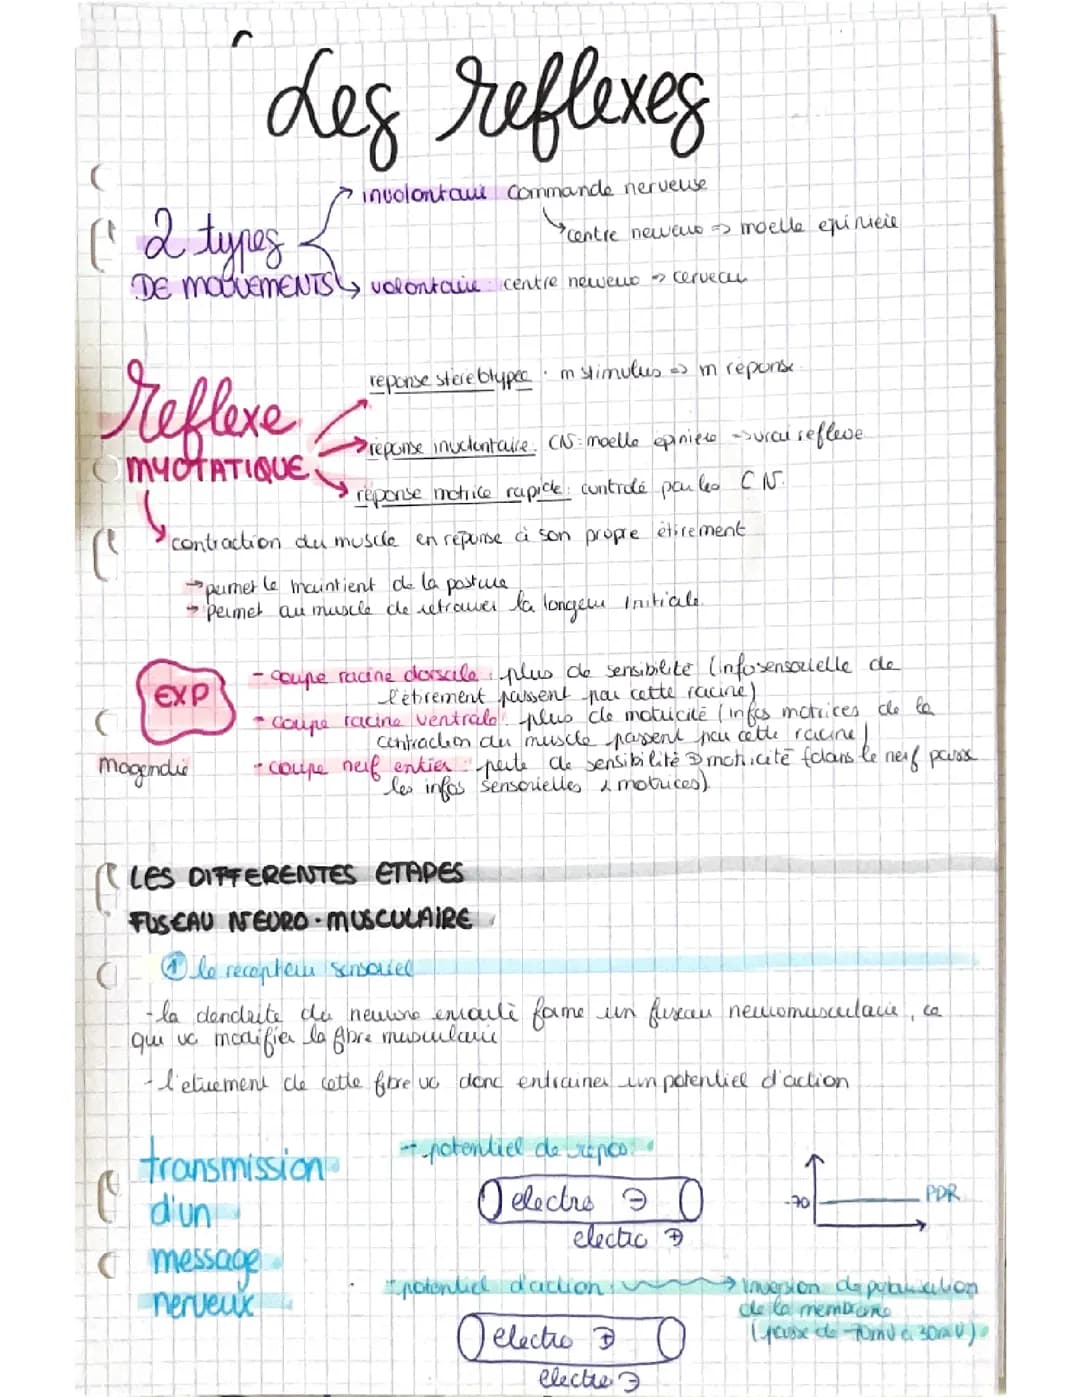 Les reflexes
involontaire commande nerveuse
centre nerveux => moelle epiniere
2 types
DE MOUVEMENTS
volontaire : centre nerveux -> cerveau
reponse stereotypee : m stimulus => m reponse
reflexe
reponse involontaire. CN : moelle epiniere -> vrai reflexe
MYOTATIQUE
réponse motrice rapide : controlé par les CN.
contraction du muscle en réponse à son propre étirement
→ permet le maintient de la posture
→ permet au muscle de retrouver la longeur initiale.
EXP
- coupe racine dorsale : plus de sensibilité (info sensorielle de
l'étirement passent par cette racine)
- coupe racine ventrale : plus de motricité (infos motrices de la
contraction du muscle passent par cette racine)
Magendie
- coupe nerf entier : perte de sensibilité motricité (dans le nerf passe
les infos sensorielles & motrices).
LES DIFFERENTES ETAPES
FUSEAU NEURO-MUSCULAIRE
① le recepteur sensoriel
- la dendrite du neurone enroulé forme un fuseau neuromusculaire, ce
qui va modifier la fibre musculaire
- l'etirement de cette fibre va donc entrainer un potentiel d'action
transmission
d'un
message
nerveux
- potentiel de repos :
electro ⊖
electro ⊕
-70
PDR
- potentiel d'action :
→ inversion de polarisation
de la membrane
(passe de -70mV à 30mV)
electro ⊕
electro ⊖